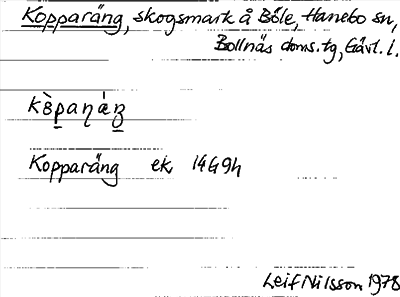 Kopparäng, skogsmark å Böle, Hanebo sn,
Bollnäs doms.tg, Gävl. l.
Kopparäng ek 14G9h
Leif Nilsson 1978